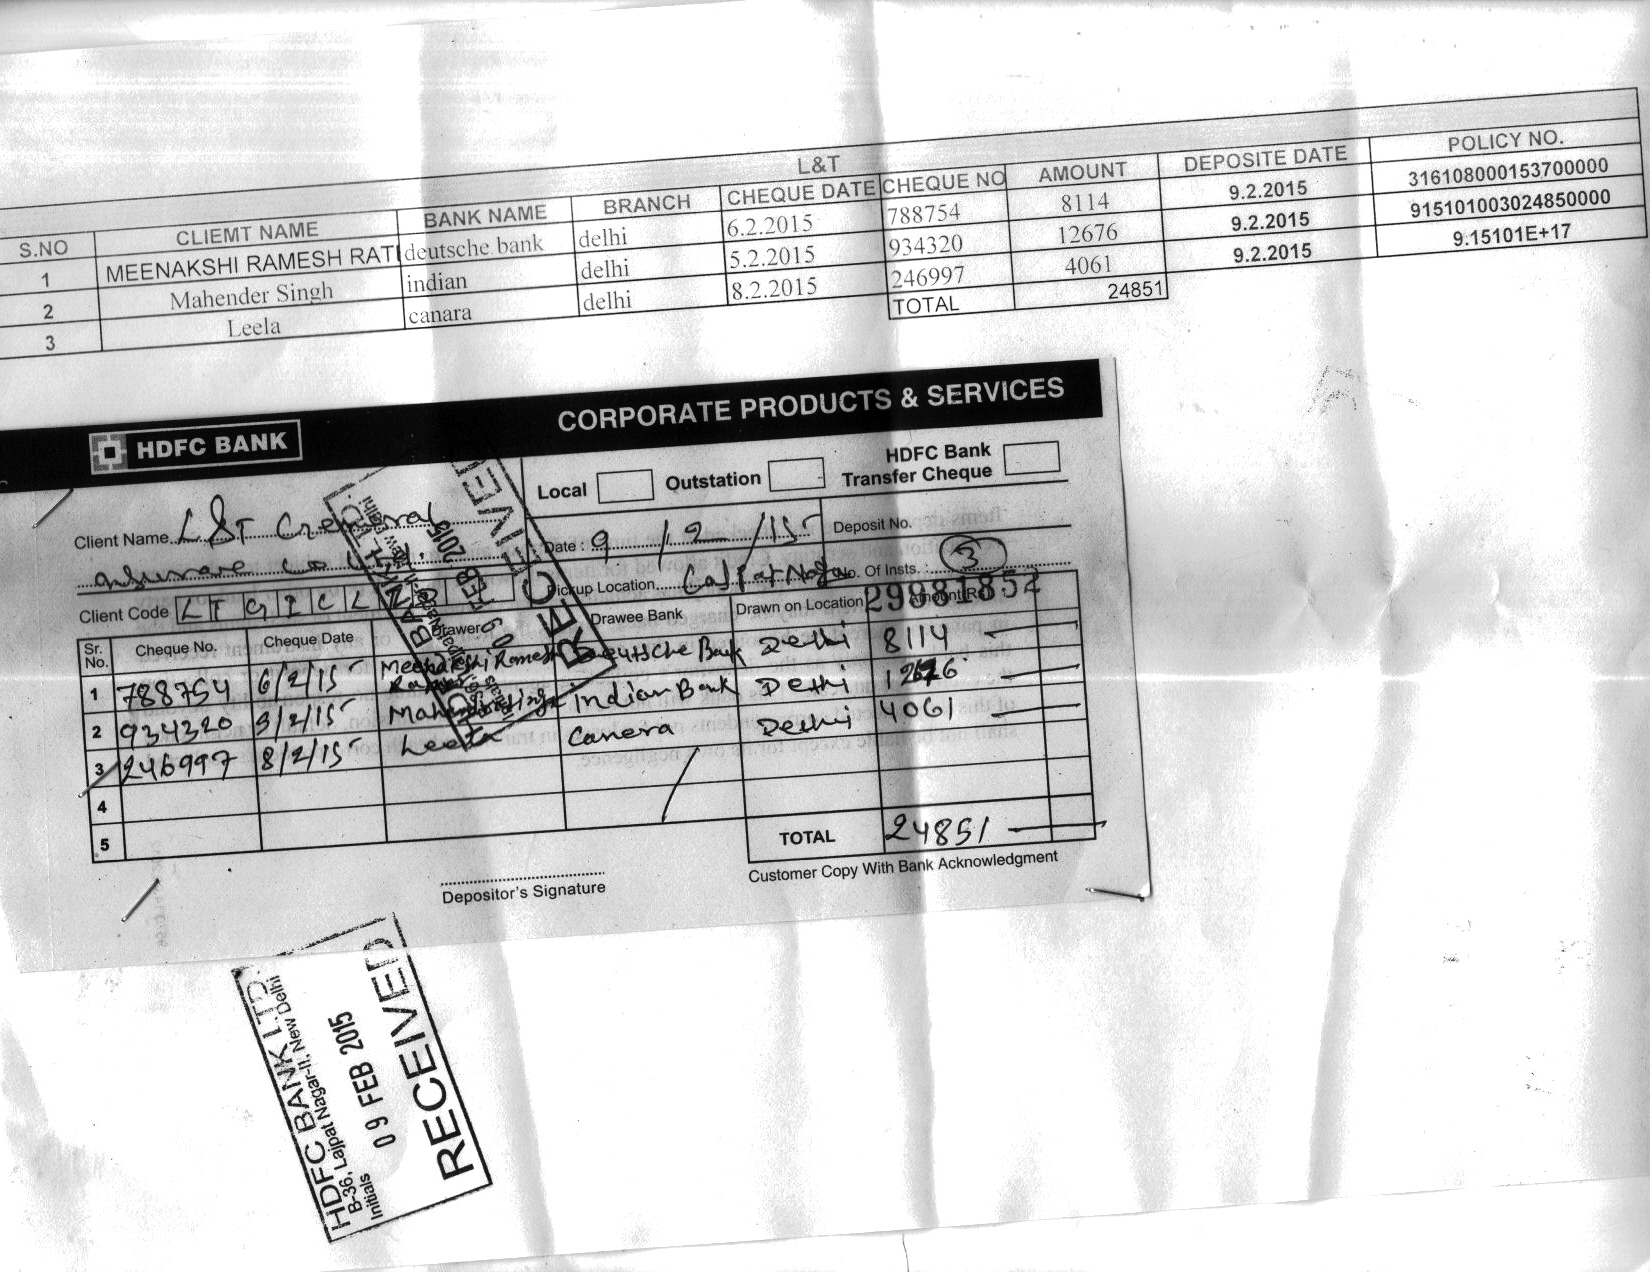 L&T
S.NO CLIEMT NAME BANK NAME BRANCH CHEQUE DATE CHEQUE NO AMOUNT DEPOSITE DATE POLICY NO.
1 MEENAKSHI RAMESH RATI deutsche bank delhi 6.2.2015 788754 8114 9.2.2015 316108000153700000
2 Mahender Singh indian delhi 5.2.2015 934320 12676 9.2.2015 915101003024850000
3 Leela canara delhi 8.2.2015 246997 4061 9.2.2015 9.15101E+17
TOTAL 24851
HDFC BANK CORPORATE PRODUCTS & SERVICES
Local Outstation HDFC Bank Transfer Cheque
Client Name L&T General
Date : 9/2/15 Deposit No.
Pickup Location Lajpat Nagar No. Of Insts. : 3
Client Code L T G I C L
29881852
Sr. No. Cheque No. Cheque Date Drawer Drawee Bank Drawn on Location Amount Rs.
1 788754 6/2/15 Meenakshi Ramesh Deutsche Bank Delhi 8114
2 934320 9/2/15 Mahender Singh Indian Bank Delhi 12676
3 246997 8/2/15 Leela Canera Delhi 4061
4
5
TOTAL 24851
Depositor's Signature
Customer Copy With Bank Acknowledgment
HDFC BANK LTD.
B-36, Lajpat Nagar-II, New Delhi
Initials 09 FEB 2015
RECEIVED
HDFC BANK LTD.
B-36, Lajpat Nagar-II, New Delhi
Initials
09 FEB 2015
RECEIVED